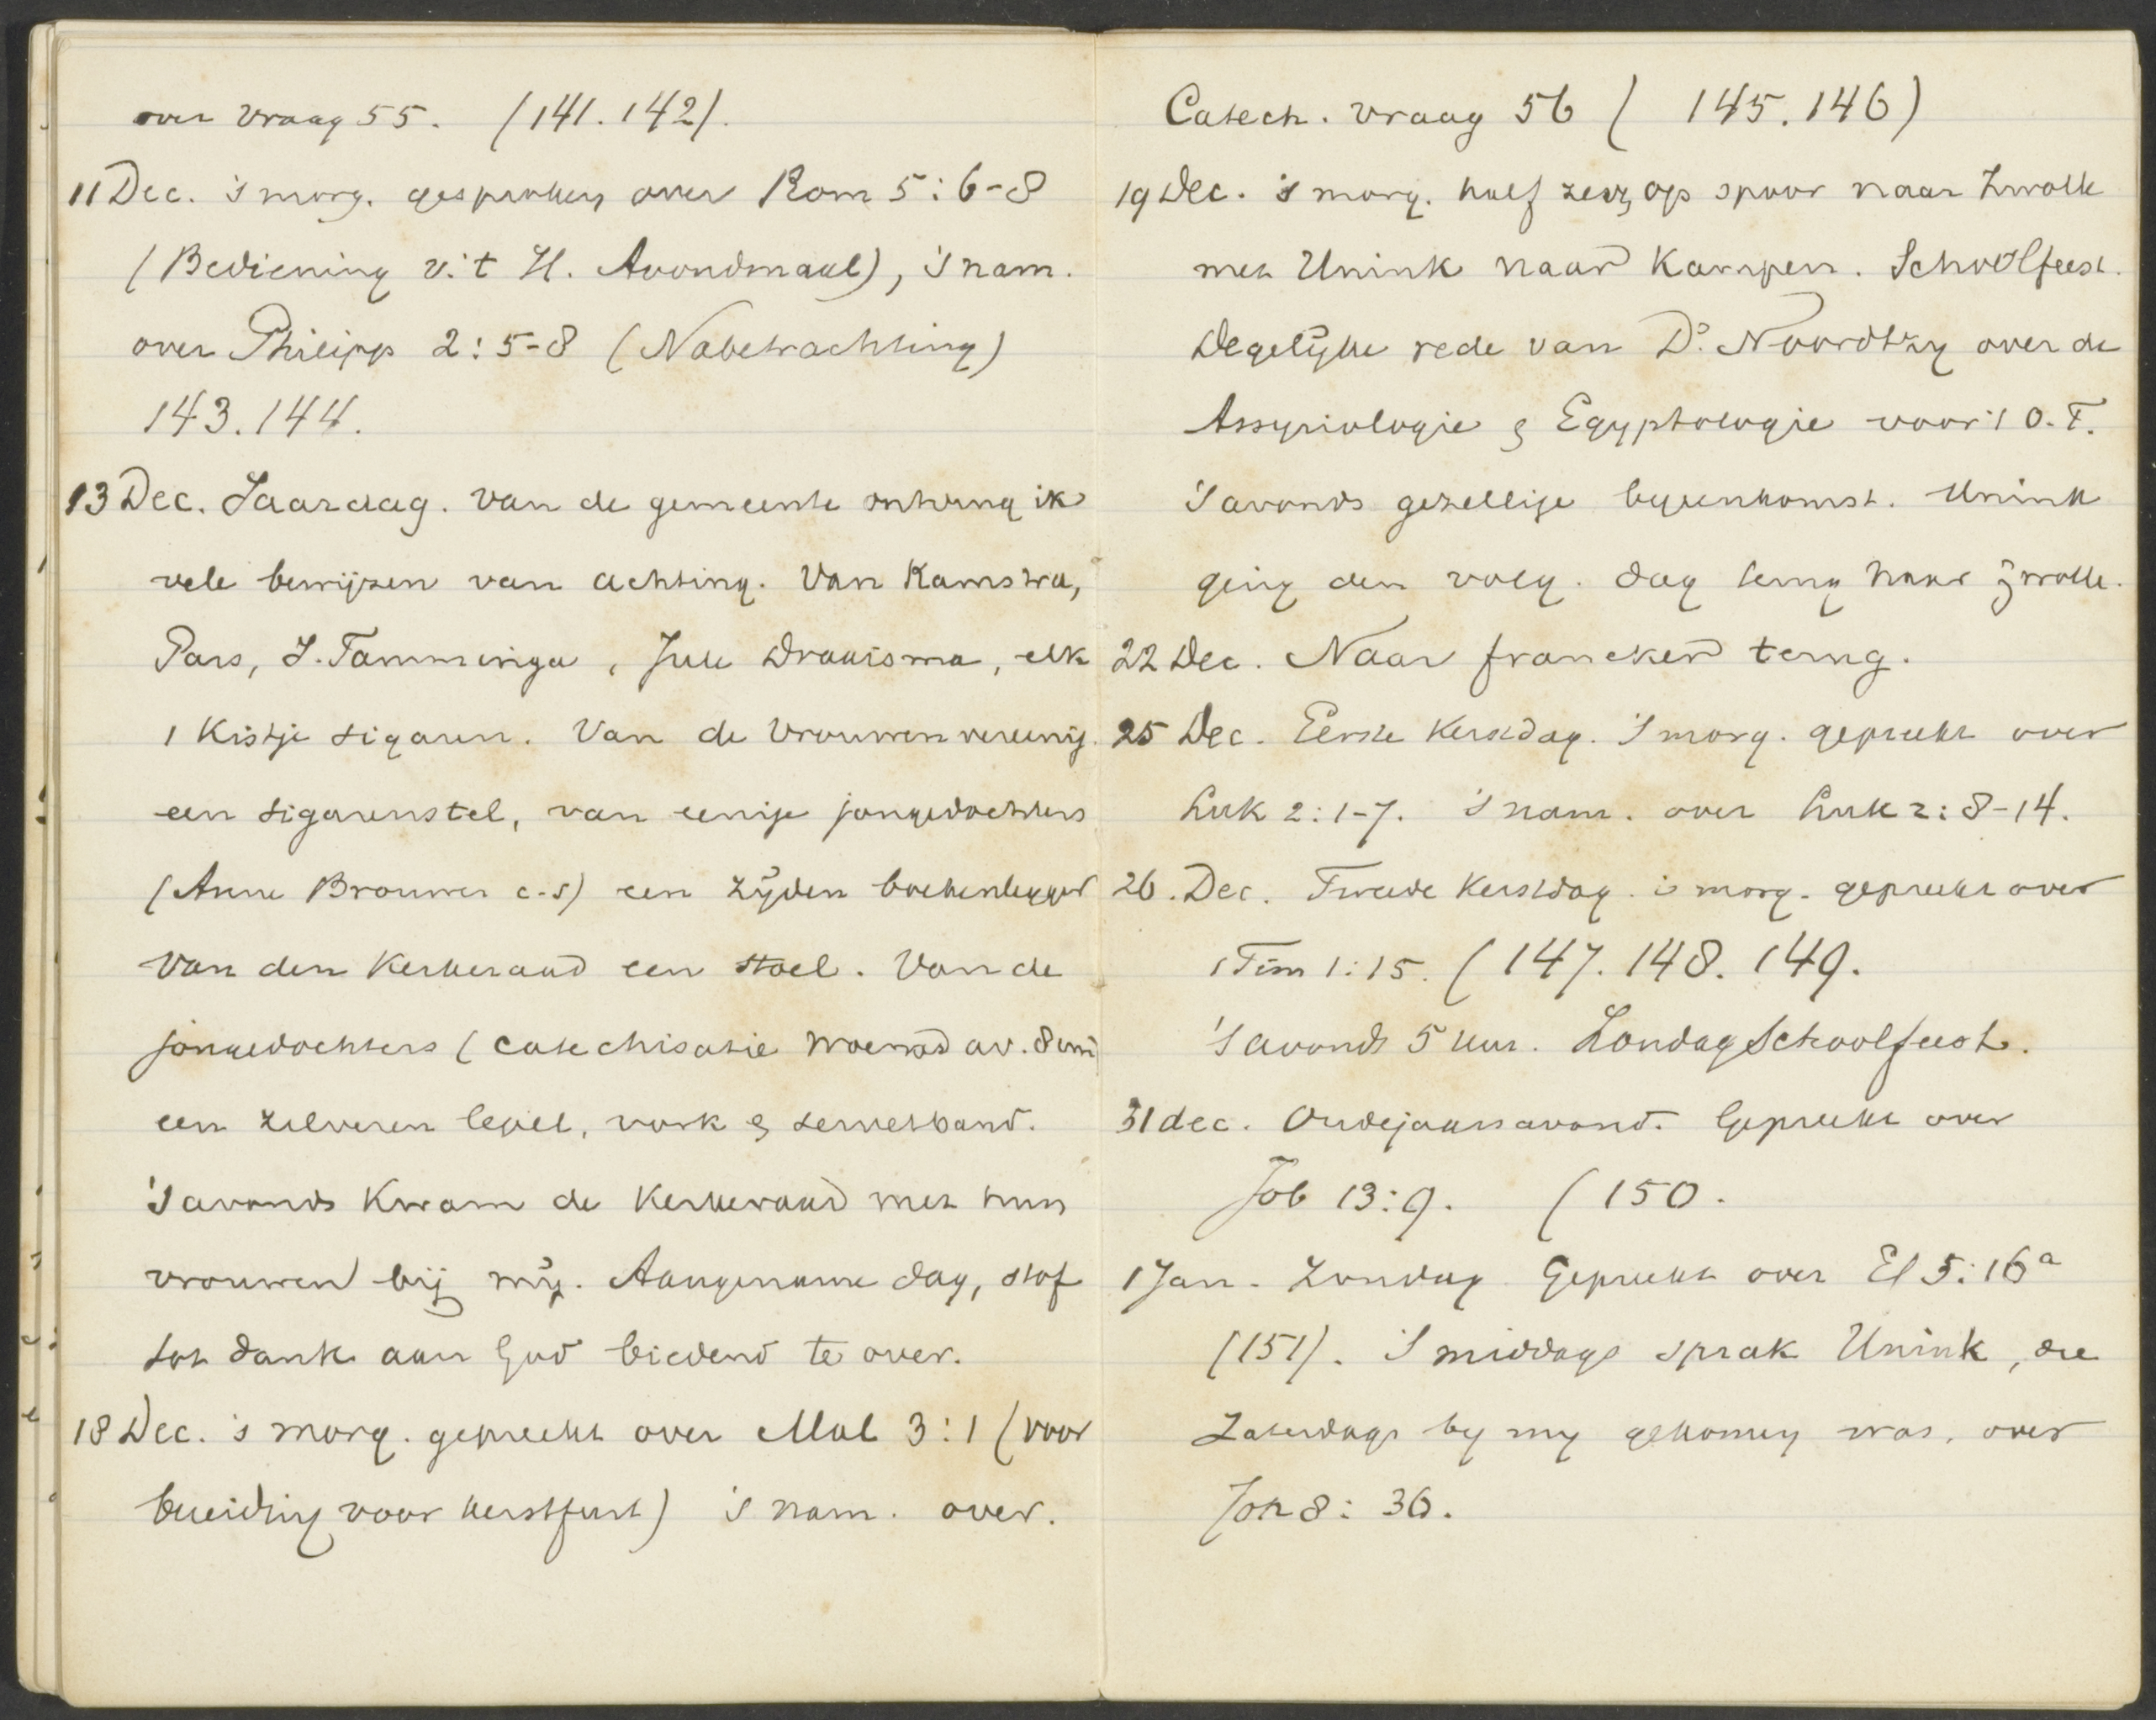 over vraag 55. (141.142).
11 Dec. 's morg. gesproken over Rom 5:6-8
(Bediening v. 't H. Avondmaal), 's nam.
over Philipp 2:5-8 (Nabetrachting)
143.144.
13 Dec. Jaardag. Van de gemeente ontving ik
vele bewijzen van achting. Van Kamstra,
Pars, J. Tamminga, Jelle Draaisma, elk
1 Kistje sigaren. Van de Vrouwenvereenig.
een sigarenstel, van eenige jongedochters
(Anne Brouwer c.s) een zijden boekenlegger
Van den Kerkeraad een stoel. Van de
jongedochters (catechisatie Woensd av. 8 uur
een zilveren lepel, vork & servetband.
's avonds Kwam de Kerkeraad met hun
vrouwen bij mij. Aangename dag, stof
tot dank aan God biedend te over.
18 Dec. 's morg. gepreekt over Mal 3:1 (voor
bereiding voor kerstfeest) 's nam. over.
Catech. vraag 56 ( 145.146)
19 Dec. 's morg. half zes op spoor naar Zwolle
met Unink naar Kampen. Schoolfeest.
Degelijke rede van Ds. Noordtzij over de
Assyriologie & Egyptologie voor 't O.T.
's avonds gezellige bijeenkomst. Unink
ging den volg. dag terug naar Zwolle.
22 Dec. Naar Franeker terug.
25 Dec. Eerste Kerstdag. 's morg. gepreekt over
Luk 2:1-7. 's nam. over Luk 2:8-14.
26. Dec. Tweede Kerstdag. 's morg. gepreekt over
1 Tim 1:15. (147.148.149.
's avonds 5 uur. Zondagschoolfeest.
31 dec. Oudejaarsavond. Gepreekt over
Job 13:9. (150.
1 Jan. Zondag Gepreekt over Ef 5:16a
(151). 's middags sprak Unink, die
Zaterdags by my gekomen was, over
Joh 8:36.